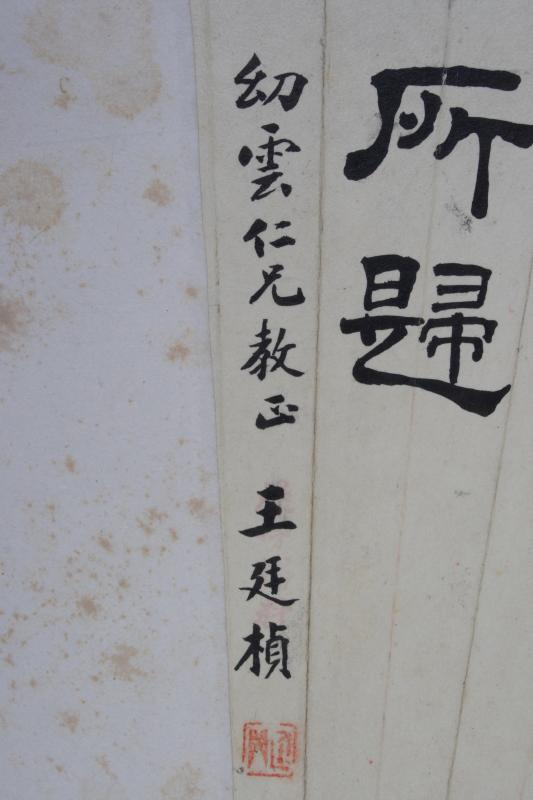 所歸
幼雲仁兄教正 王廷楨